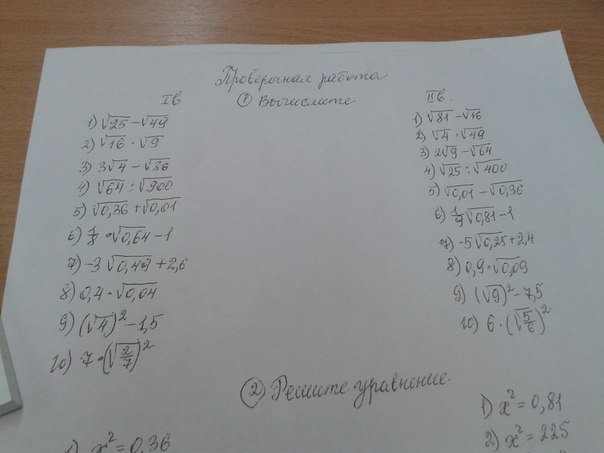 Проверочная работа
Iв
① Вычислите
1) √25 − √49
2) √16 · √9
3) 3√4 − √36
4) √64 : √900
5) √0,36 + √0,01
6) 1/8 · √0,64 − 1
7) −3√0,49 + 2,6
8) 0,4 · √0,04
9) (√4)² − 1,5
10) 7 · (√2/7)²
IIв.
1) √81 − √16
2) √4 · √49
3) 2√9 − √64
4) √25 : √400
5) √0,01 − √0,36
6) 1/9 √0,81 − 1
7) −5√0,25 + 2,4
8) 0,9 · √0,09
9) (√9)² − 7,5
10) 6 · (√5/6)²
② Решите уравнение
1) x² = 0,36
1) x² = 0,81
2) x² = 225